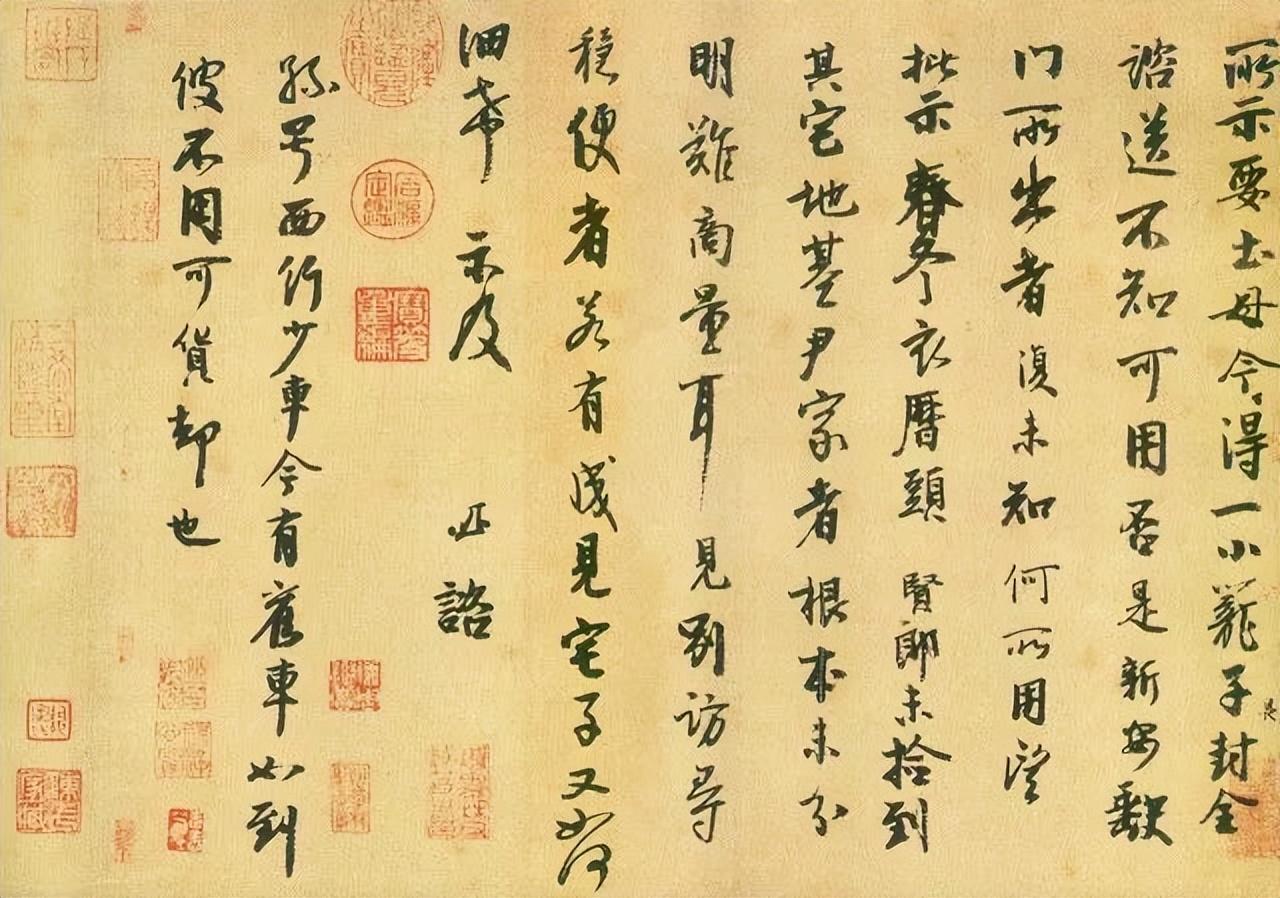 所示要土母今得一小籠子封全
諮送不知可用否是新安缺
门所出者復未知何所用望
批示春冬衣曆頭賢郎未拾到
其宅地基尹家者根本未分
明難商量耳見別訪尋
穩便者若有成見宅子又如何
細希示及 諮
孫号西行少車今有舊車如到
彼不用可貨却也